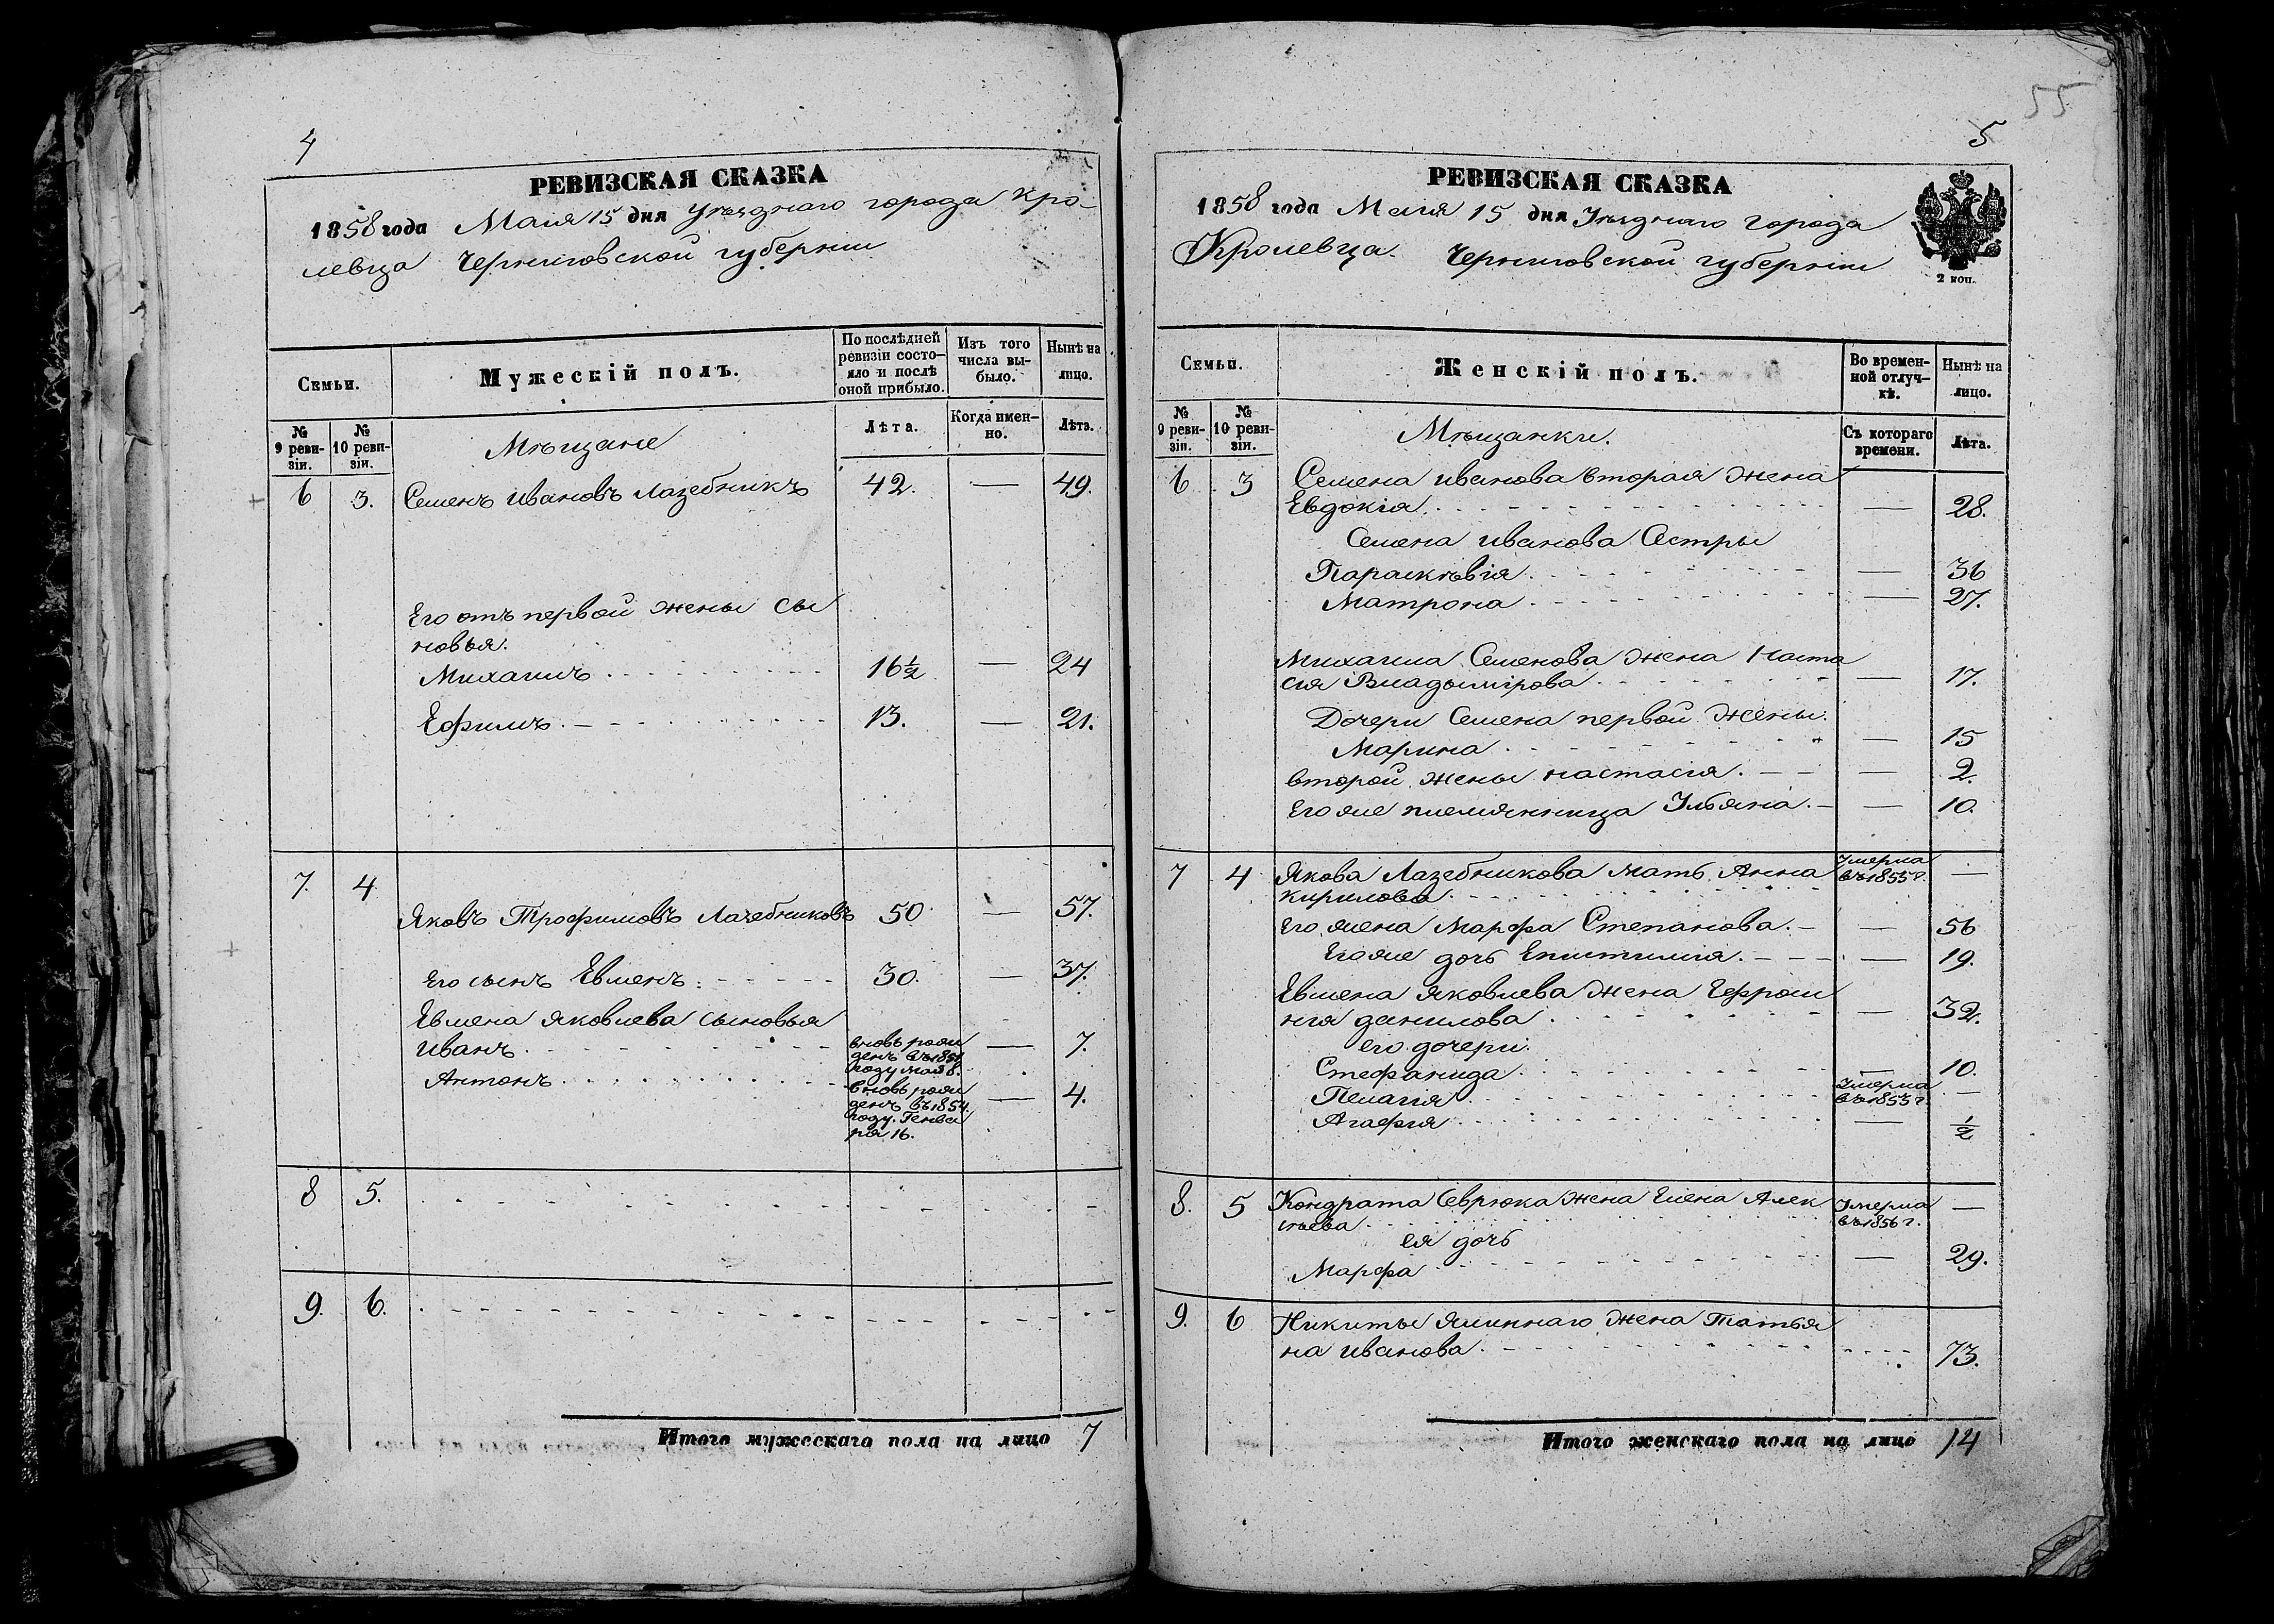 4
РЕВИЗСКАЯ СКАЗКА
1858 года Маія 15 дня Уѣзднаго города Кро-
левца Черниговской губерніи
Семьи.
Мужескій полъ.
По послѣдней ревизіи состо-яло и послѣ оной прибыло.
Изъ того числа вы-было.
Нынѣ на лицо.
№ 9 реви-зіи.
№ 10 реви-зіи.
Мѣщане
Лѣта.
Когда имен-но.
Лѣта.
6 3. Семенъ Ивановъ Лазебникъ 42. — 49.
Его отъ первой жены сы
новья.
Михаилъ 16½ — 24
Ефимъ. 13. — 21.
7 4
Яковъ Трофимовъ Лазебниковъ 50 — 57.
Его сынъ Евменъ. 30. — 37.
Евмена Яковлева сыновья
Иванъ вновь рожденъ въ 1851 году мая 8. — 7.
Антонъ вновь рожденъ въ 1854 году. Генваря 16. — 4.
8 5.
9. 6.
Итого мужескаго пола на лицо 7
55
5
РЕВИЗСКАЯ СКАЗКА
1858 года Маія 15 дня Уѣзднаго города
Кролевца. Черниговской губерніи
2 коп.
Семьи.
Женскій полъ.
Во времен-ной отлуч-кѣ.
Нынѣ на лицо.
№ 9 реви-зіи.
№ 10 реви-зіи.
Мѣщанки.
Съ котораго времени.
Лѣта.
6 3 Семена Иванова вторая жена
Евдокія. — 28.
Семена Иванова Сестры
Параскѣвія. — 36
Матрона — 27.
Михаила Семенова жена Наста
сія Владымірова — 17.
Дочери Семена первой жены.
Марина — 15
второй жены Настасія. — 2.
Его же племянница Ульяна. — 10.
7 4 Якова Лазебникова мать Анна Умерла въ 1855 г. —
Кирилова.
Его жена Марфа Степанова. — 56
Его же дочь Епистимія. — 19.
Евмена Яковлева жена Ефроси
нія Данилова — 32.
его дочери.
Стефанида — 10.
Пелагія Умерла въ 1853 г. —
Агафія — ½
8. 5 Кондрата Севрюка жена Елена Алек Умерла въ 1856 г. —
сѣева
ея дочь
Марфа — 29.
9. 6 Никиты Яминнаго жена Татья
на Иванова. 73.
Итого женскаго пола на лицо 14